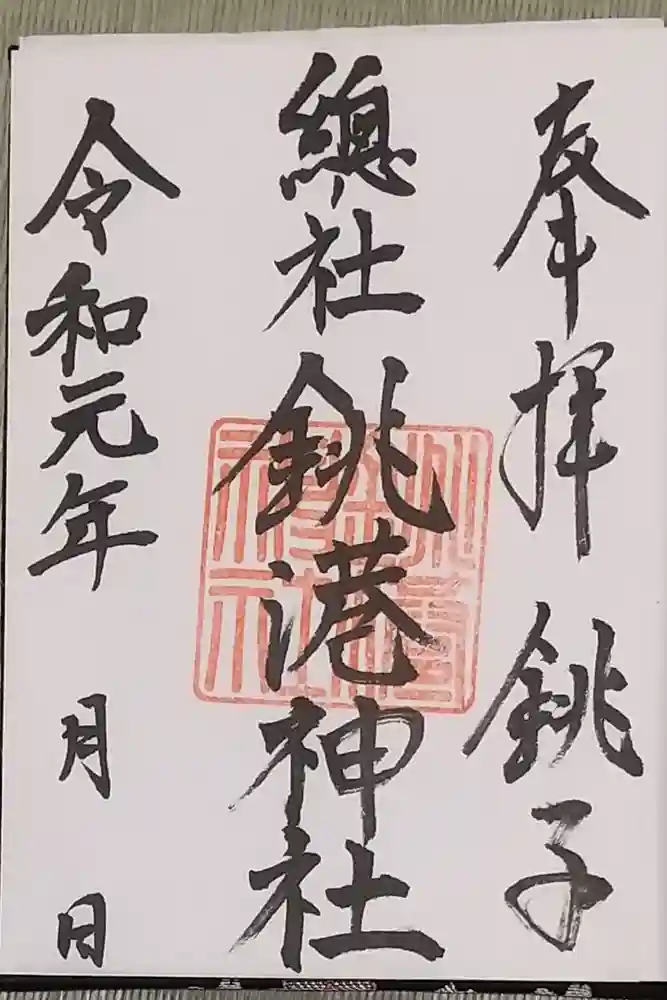 奉拝 銚子
總社 銚港神社
令和元年 月 日